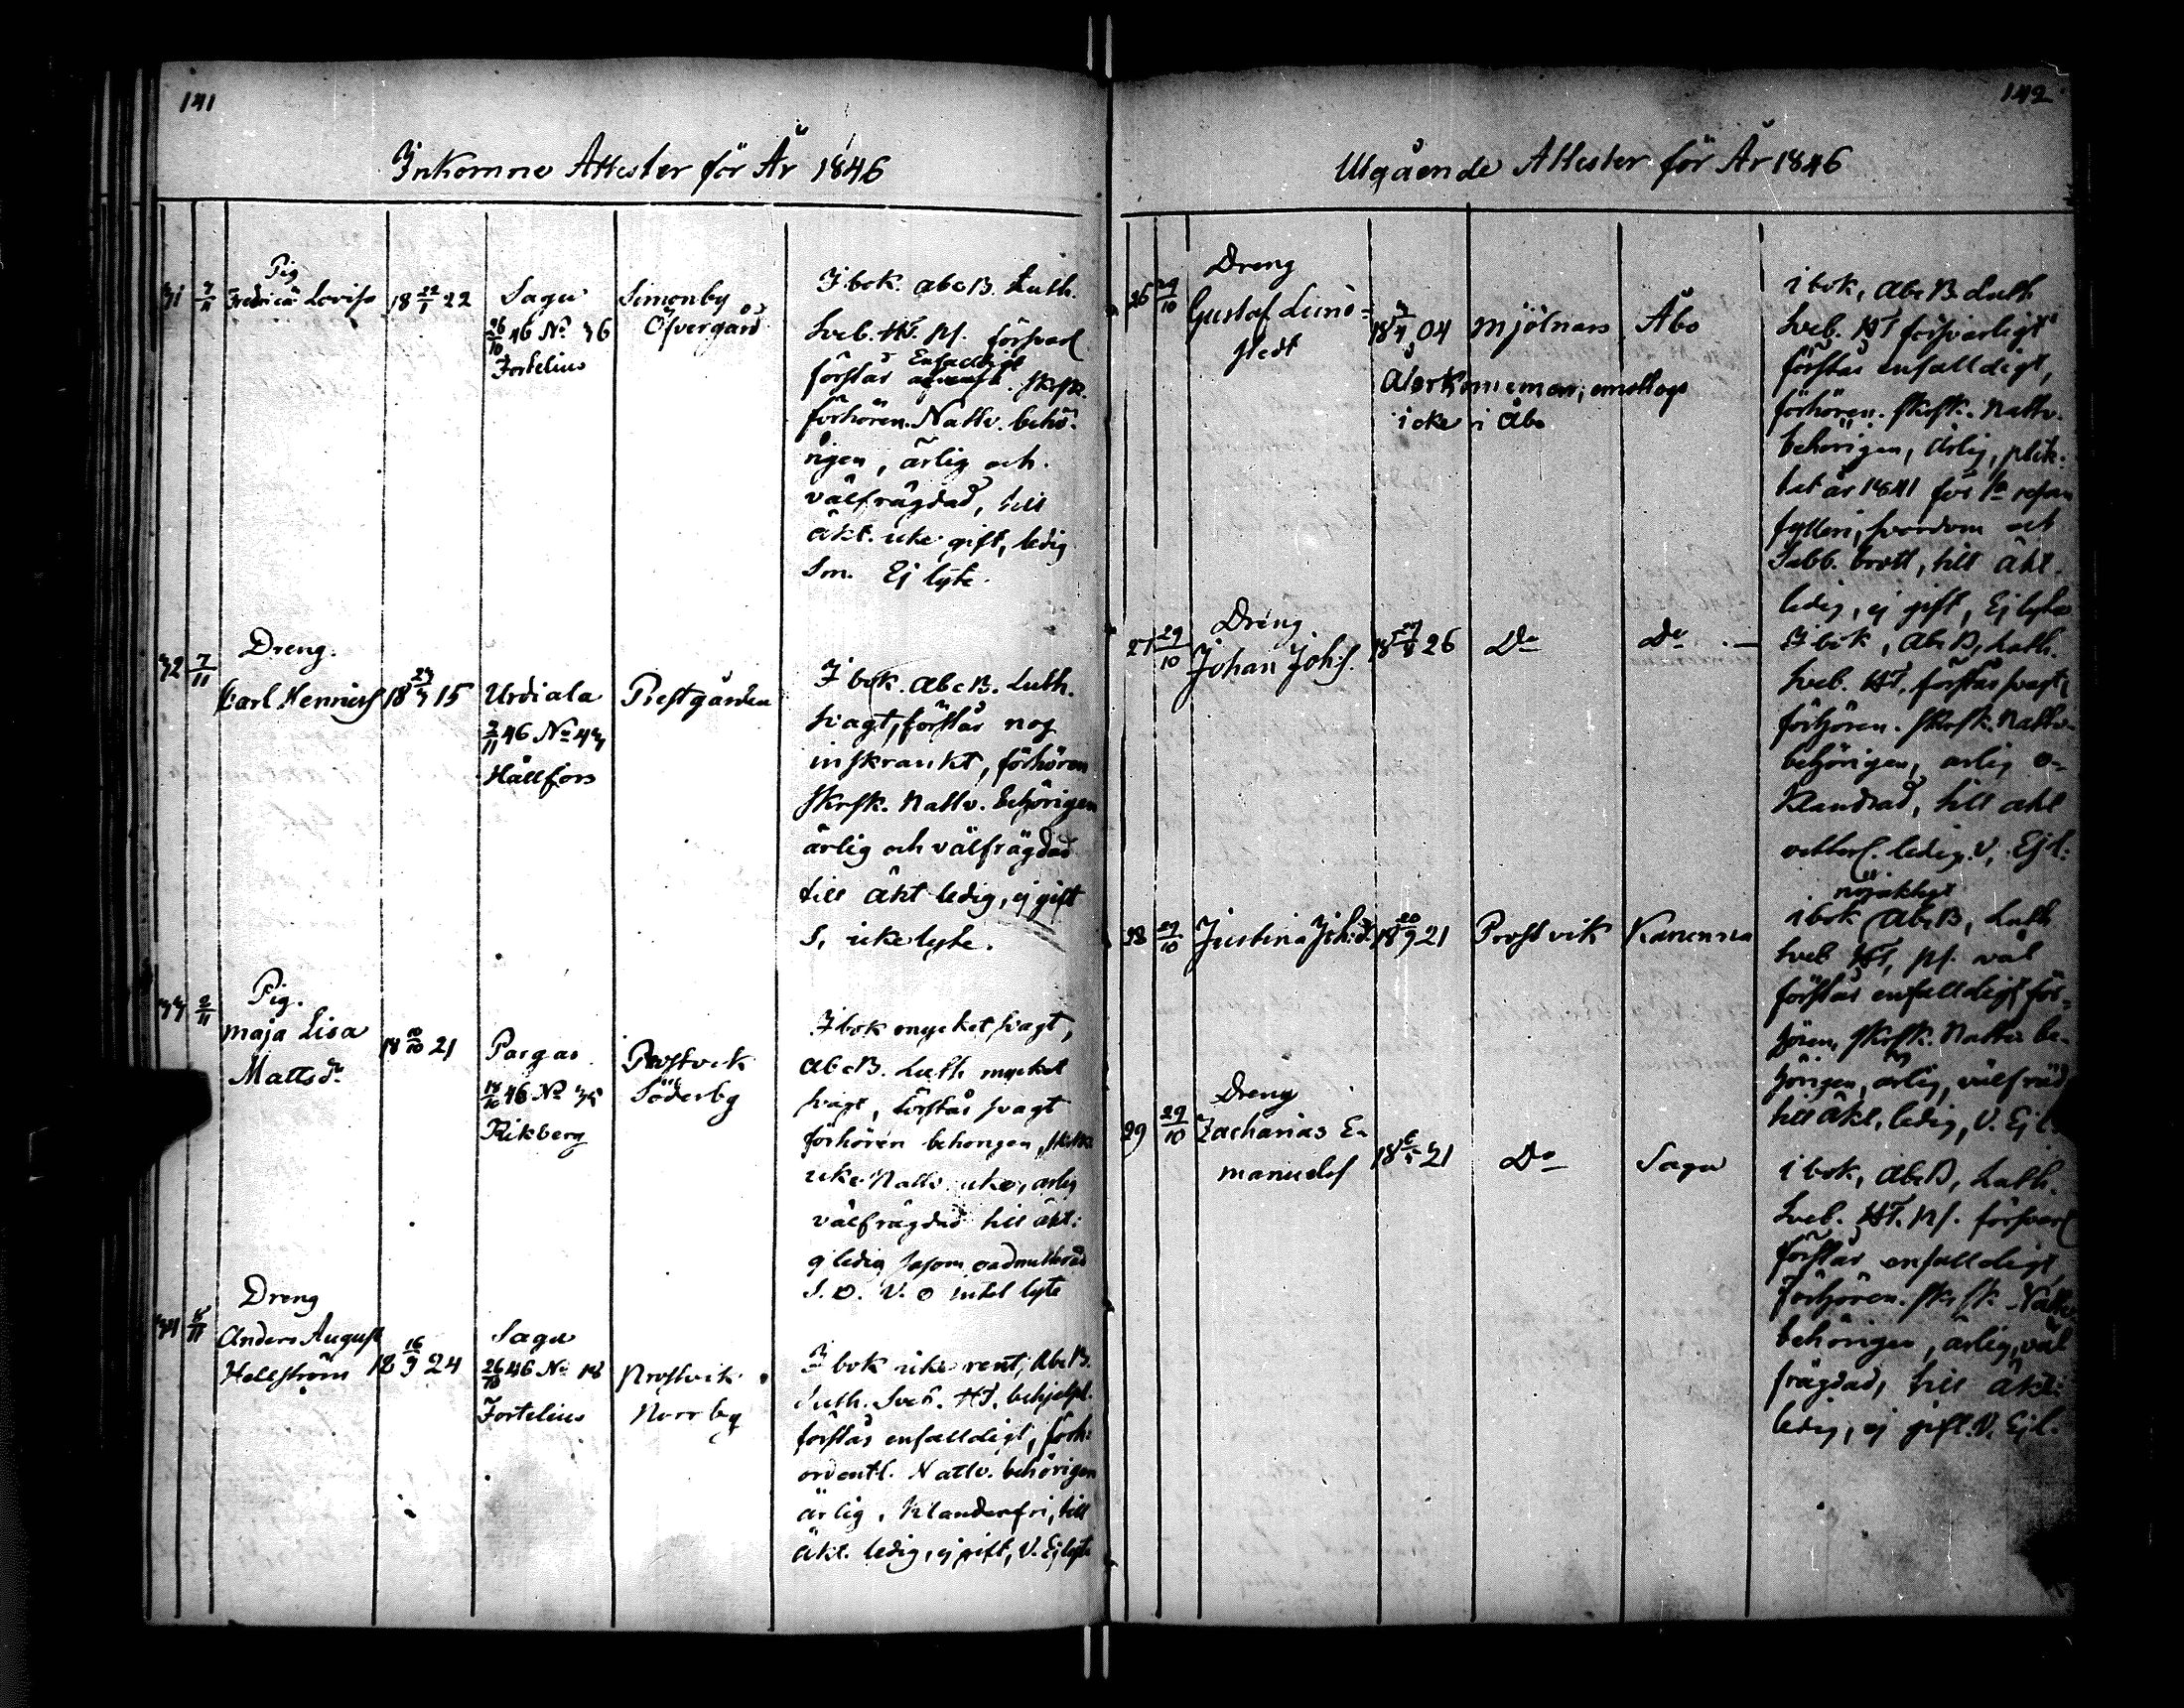 141
Inkomne Attester för År 1846
31 7/11 Pig
Fredrica Lovisa 18 22/1 22 Sagu Simonby
26/10 46 No 36 Öfvergård
Fortelius
I bok. AbcB. Luth.
Sveb. HT. Ps. försvarl
förstår Enfaldigt
förhören. Nattv. behö-
rigen, ärlig och
välfrägdad, till
äkt. icke gift, ledig
Sm. Ej lyte.
32 7/11 Dreng.
Carl Henrics 18 23/3 15 Urdiala Prestgården
2/11 46 No 43
Hällfors
I bok. AbcB. Luth.
svagt, förstår nog
inskränkt, förhören
skrfsk. Nattv. behörigen
ärlig och välfrägdad
till äkt ledig, ej gift
S, icke lyte.
33 2/11 Pig.
Maja Lisa
Mattsdr 18 10/10 21 Pargas Prostvik
18/10 46 No 35 Söderby
Rikberg
I bok mycket svagt,
AbcB. Luth mycket
svagt, förstår svagt
förhören behörigen,
icke Nattv. icke, ärlig
välfrägdad till äkt:
ledig såsom oadmitterad
S. O. V. O intet lyte
34 8/11 Dreng
Anders August
Hellström 18 16/9 24 Sagu
26/10 46 No 18 Prostvik
Fortelius Norrby
I bok icke rent, AbcB.
Luth. Sveb. HT. behjelpl.
förstår enfalldigt, förh:
ordentl. Nattv. behörigen
ärlig, klanderfri, till
äkt. ledig, ej gift, V. Ej lyte
142
Utgående Attester för År 1846
26 29/10 Dreng
Gustaf Lind-
stedt 18 3/4 04 Mjölnars Åbo
Återkommen, emottogs
icke i Åbo
i bok, AbcB Luth
Sveb. HT försvarligt
förstår enfalldigt,
förhören. skrfsk. Nattv.
behörigen, ärlig, plik-
tat år 1841 för 1a resan
fylleri, svordom och
Sabb. brott, till äkt.
ledig, ej gift, Ej lyte
27 29/10 Dreng
Johan Johs. 18 27/8 26 Do Do
I bok, AbcB, Luth.
Sveb. HT, förstår svagt,
förhören. Skrfsk. Nattv.
behörigen, ärlig o-
klandrad, till äkt
vetterl. ledig. V. Ej l:
28 29/10 Justina Joh:dr 18 20/9 21 Prostvik Karuna
nöjaktigt
i bok AbcB, Luth
Sveb HT, ps. väl
förstår enfalldigt för-
hören, skrfsk. Nattv. be-
hörigen, ärlig, välfräd
till äkt, ledig, V. Ej l.
29 29/10 Dreng
Zacharias E-
manuels 18 6/5 21 Do Sagu
i bok, AbcB, Luth.
Sveb. HT. Ps. försvarl
förstår enfalldigt
förhören. skrfsk Nattv.
behörigen, ärlig, väl
frägdad, till äkt:
ledig, ej gift. V. Ej l.